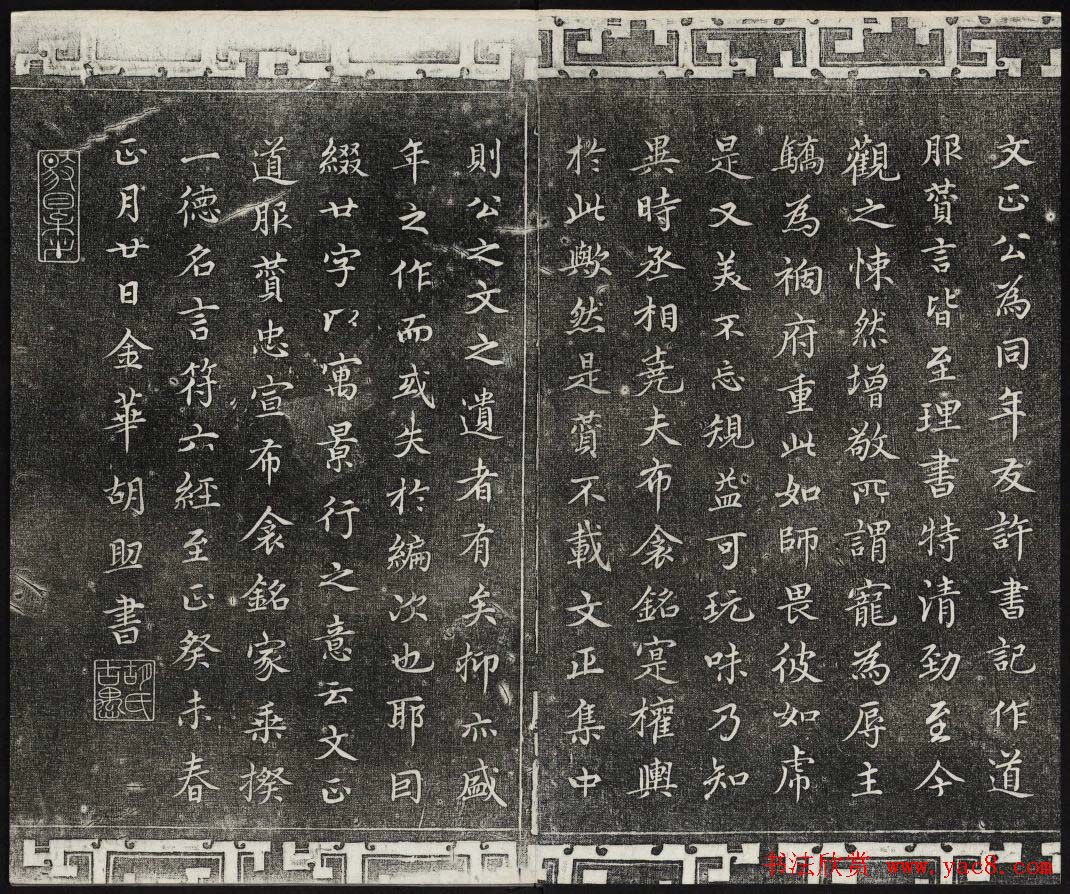 文正公為同年友許書記作道
服蕒言皆至理書特清劲至今
觀之悚然增敬所謂寵為辱主
驕為禍府重此如師畏彼如虎
是又美不忘規益可玩味乃知
異時丞相堯夫布衾銘寔權輿
於此歟然是蕒不載文正集中
則公之文之遺者有矣抑亦盛
年之作而或失於編次也耶因
綴廿字以寓景行之意云文正
道服蕒忠宣布衾銘家乘揆
一德名言符六經至正癸未春
正月廿日金華胡助書
胡氏古愚
书法欣赏 www.yac8.com